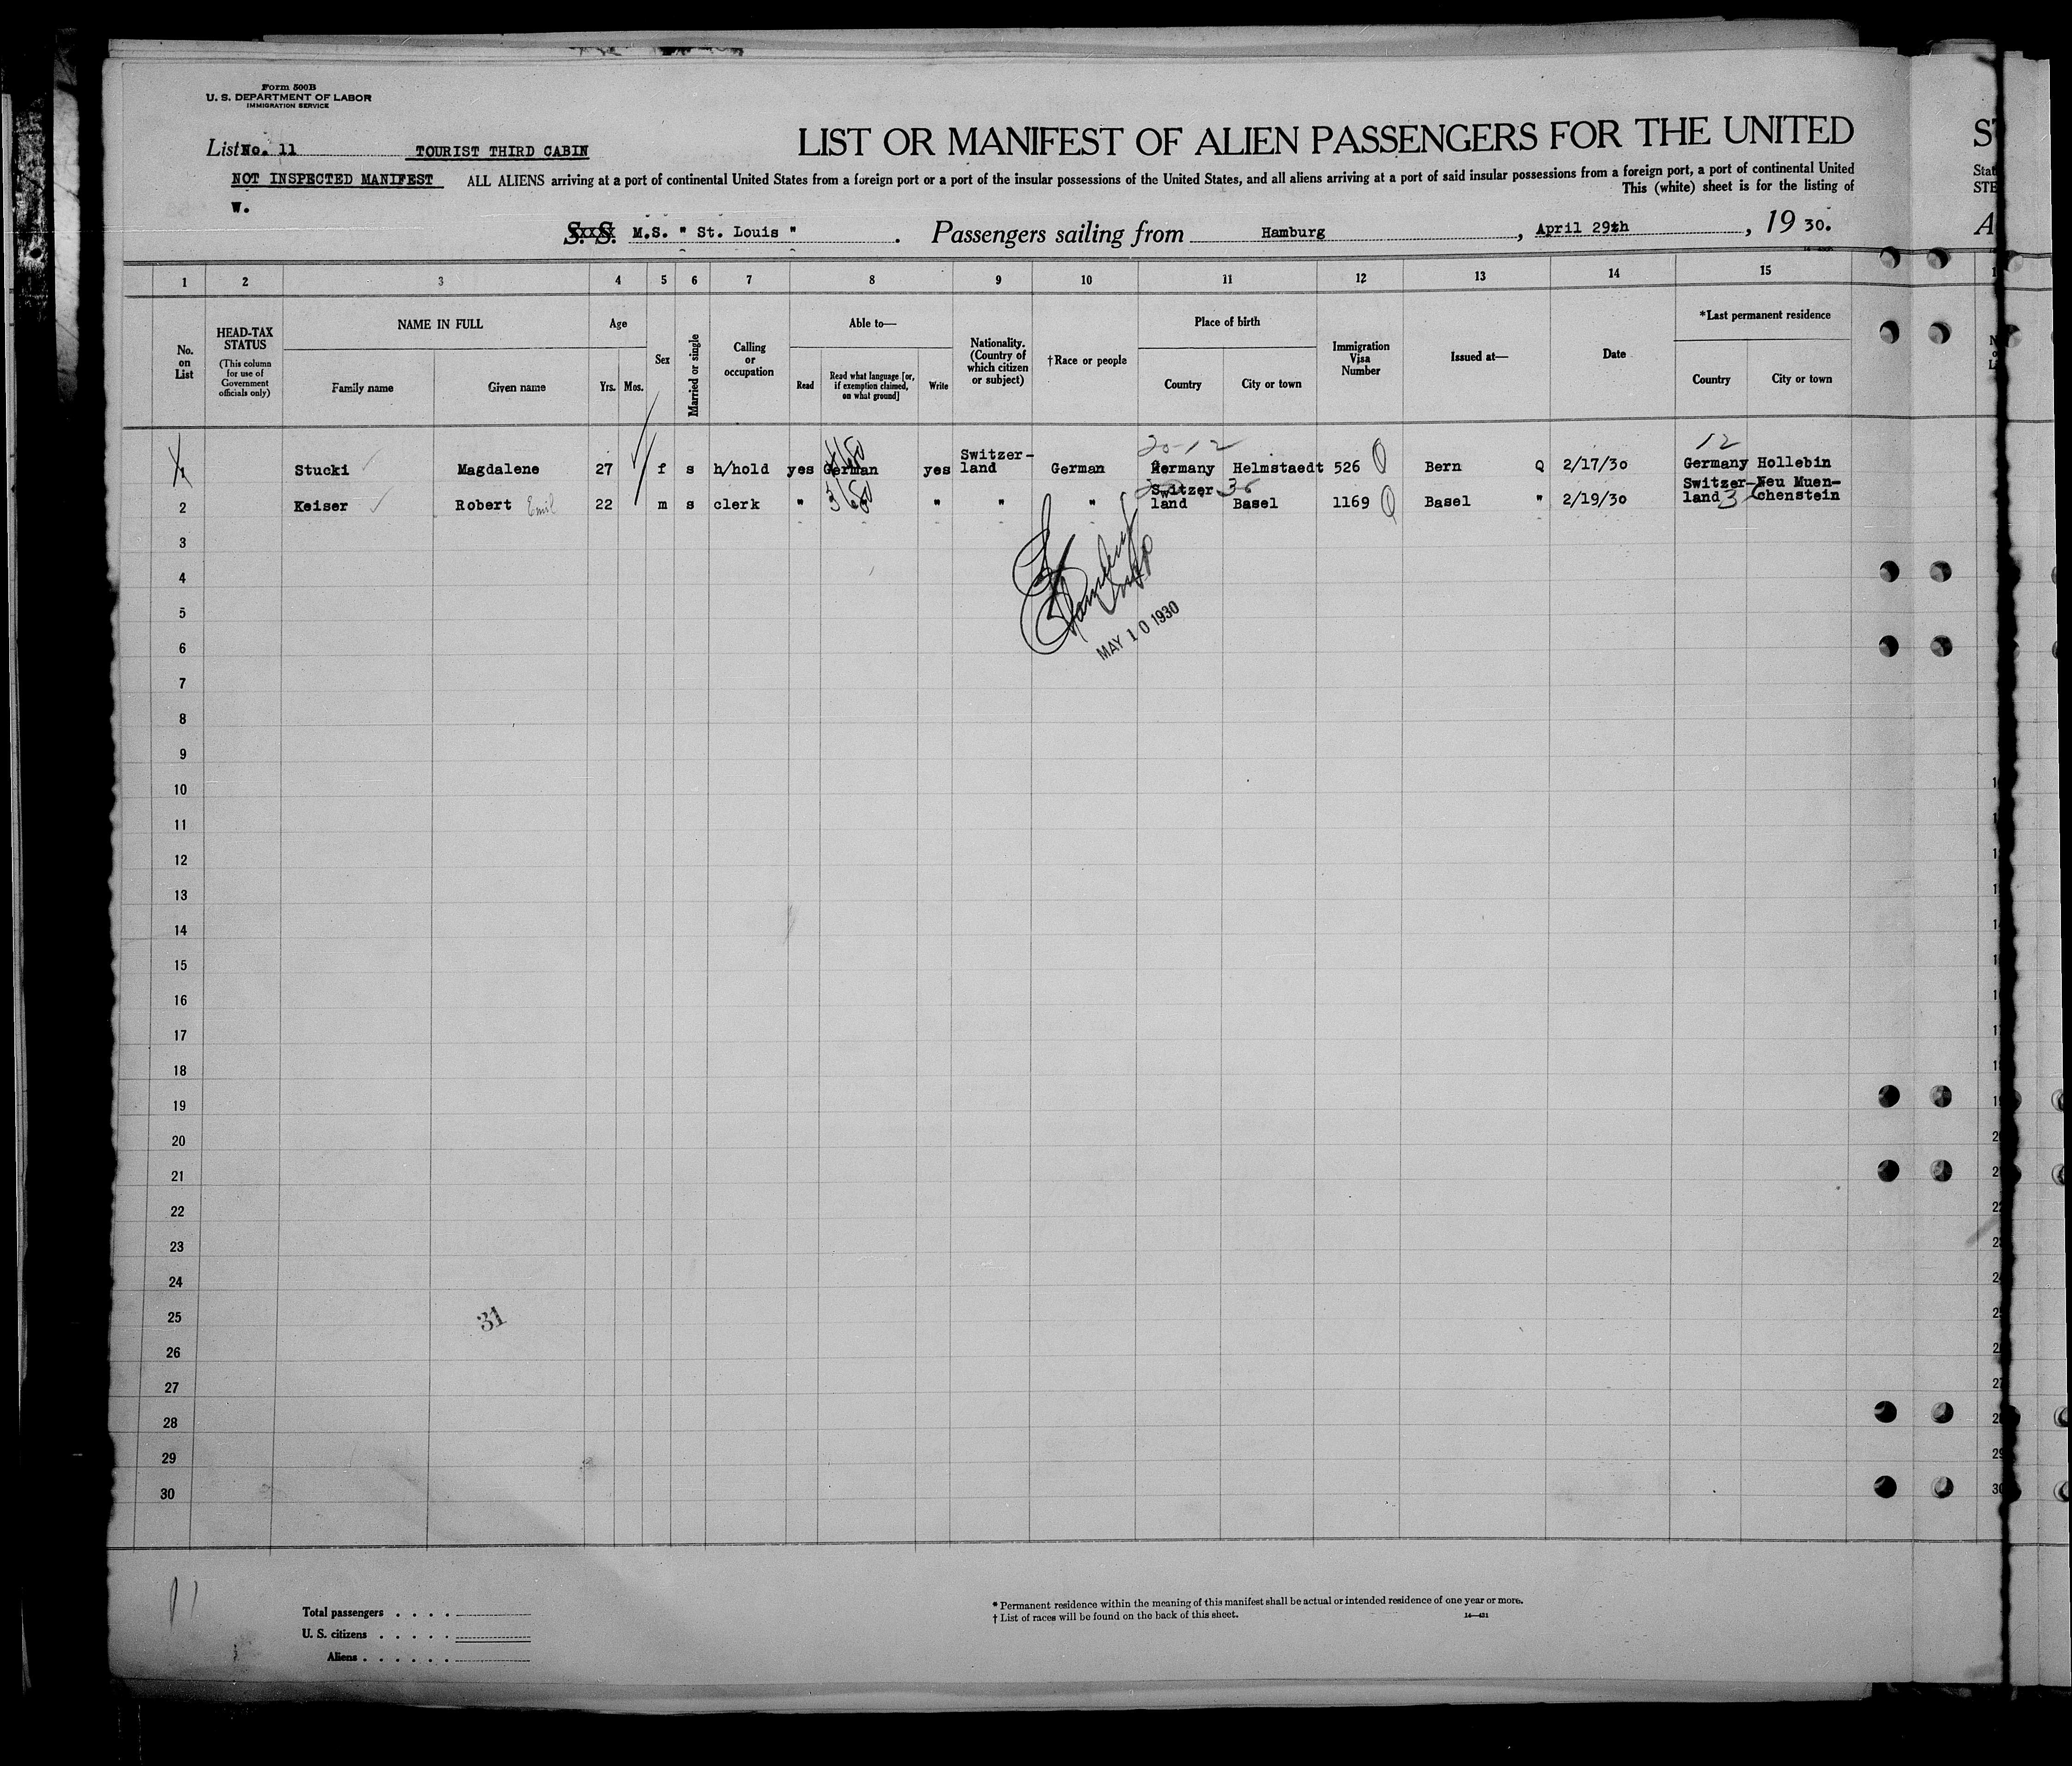 Form 500B
U. S. DEPARTMENT OF LABOR
IMMIGRATION SERVICE
List No. 11 TOURIST THIRD CABIN
LIST OR MANIFEST OF ALIEN PASSENGERS FOR THE UNITED
NOT INSPECTED MANIFEST
W.
ALL ALIENS arriving at a port of continental United States from a foreign port or a port of the insular possessions of the United States, and all aliens arriving at a port of said insular possessions from a foreign port, a port of continental United
This (white) sheet is for the listing of
S. S. M.S. " St. Louis " . Passengers sailing from Hamburg , April 29th , 19 30.
1 2 3 4 5 6 7 8 9 10 11 12 13 14 15
No. on List
HEAD-TAX STATUS
(This column for use of Government officials only)
NAME IN FULL
Family name Given name
Age
Yrs. Mos.
Sex
Married or single
Calling or occupation
Able to—
Read
Read what language [or, if exemption claimed, on what ground]
Write
Nationality. (Country of which citizen or subject)
†Race or people
Place of birth
Country City or town
Immigration Visa Number
Issued at—
Date
*Last permanent residence
Country City or town
20-12 12
1 Stucki Magdalene 27 f s h/hold yes German yes Switzer-land German Germany Helmstaedt 526 Bern Q 2/17/30 Germany Hollebin
2 Keiser Robert Emil 22 m s clerk " " " " " Switzer land Basel 1169 Basel " 2/19/30 Switzer-land Neu Muen-chenstein
3
4
5
MAY 10 1930
6
7
8
9
10
11
12
13
14
15
16
17
18
19
20
21
22
23
24
25
31
26
27
28
29
30
Total passengers . . . .
U. S. citizens . . . . .
Aliens . . . . . .
* Permanent residence within the meaning of this manifest shall be actual or intended residence of one year or more.
† List of races will be found on the back of this sheet.
14—421